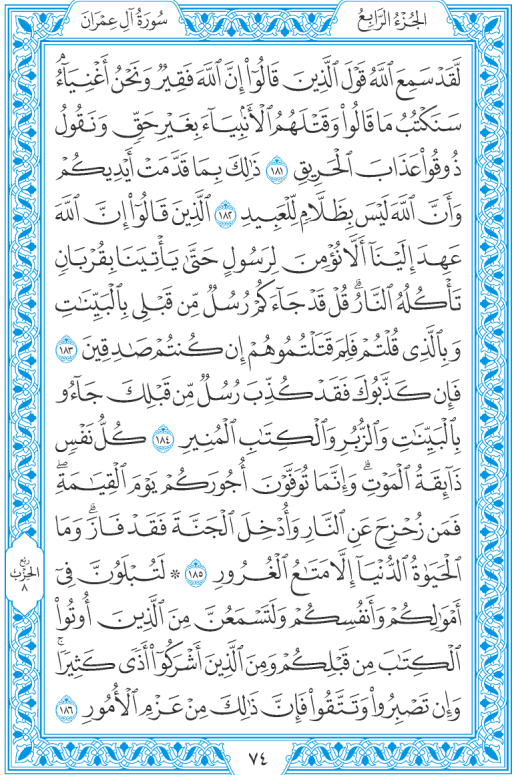 الجُزْءُ الرَّابِعُ
سُورَةُ آلِ عِمْرَانَ
لَّقَدْ سَمِعَ ٱللَّهُ قَوْلَ ٱلَّذِينَ قَالُوٓا۟ إِنَّ ٱللَّهَ فَقِيرٌ وَنَحْنُ أَغْنِيَآءُ ۘ
سَنَكْتُبُ مَا قَالُوا۟ وَقَتْلَهُمُ ٱلْأَنۢبِيَآءَ بِغَيْرِ حَقٍّ وَنَقُولُ
ذُوقُوا۟ عَذَابَ ٱلْحَرِيقِ ١٨١ ذَٰلِكَ بِمَا قَدَّمَتْ أَيْدِيكُمْ
وَأَنَّ ٱللَّهَ لَيْسَ بِظَلَّامٍ لِّلْعَبِيدِ ١٨٢ ٱلَّذِينَ قَالُوٓا۟ إِنَّ ٱللَّهَ
عَهِدَ إِلَيْنَآ أَلَّا نُؤْمِنَ لِرَسُولٍ حَتَّىٰ يَأْتِيَنَا بِقُرْبَانٍ
تَأْكُلُهُ ٱلنَّارُ ۗ قُلْ قَدْ جَآءَكُمْ رُسُلٌ مِّن قَبْلِى بِٱلْبَيِّنَٰتِ
وَبِٱلَّذِى قُلْتُمْ فَلِمَ قَتَلْتُمُوهُمْ إِن كُنتُمْ صَٰدِقِينَ ١٨٣
فَإِن كَذَّبُوكَ فَقَدْ كُذِّبَ رُسُلٌ مِّن قَبْلِكَ جَآءُو
بِٱلْبَيِّنَٰتِ وَٱلزُّبُرِ وَٱلْكِتَٰبِ ٱلْمُنِيرِ ١٨٤ كُلُّ نَفْسٍ
ذَآئِقَةُ ٱلْمَوْتِ ۗ وَإِنَّمَا تُوَفَّوْنَ أُجُورَكُمْ يَوْمَ ٱلْقِيَٰمَةِ ۖ
فَمَن زُحْزِحَ عَنِ ٱلنَّارِ وَأُدْخِلَ ٱلْجَنَّةَ فَقَدْ فَازَ ۗ وَمَا
ٱلْحَيَوٰةُ ٱلدُّنْيَآ إِلَّا مَتَٰعُ ٱلْغُرُورِ ١٨٥ ۞ لَتُبْلَوُنَّ فِىٓ
أَمْوَٰلِكُمْ وَأَنفُسِكُمْ وَلَتَسْمَعُنَّ مِنَ ٱلَّذِينَ أُوتُوا۟
ٱلْكِتَٰبَ مِن قَبْلِكُمْ وَمِنَ ٱلَّذِينَ أَشْرَكُوٓا۟ أَذًى كَثِيرًا ۚ
وَإِن تَصْبِرُوا۟ وَتَتَّقُوا۟ فَإِنَّ ذَٰلِكَ مِنْ عَزْمِ ٱلْأُمُورِ ١٨٦
رُبْع
الحِزْبِ
٨
٧٤